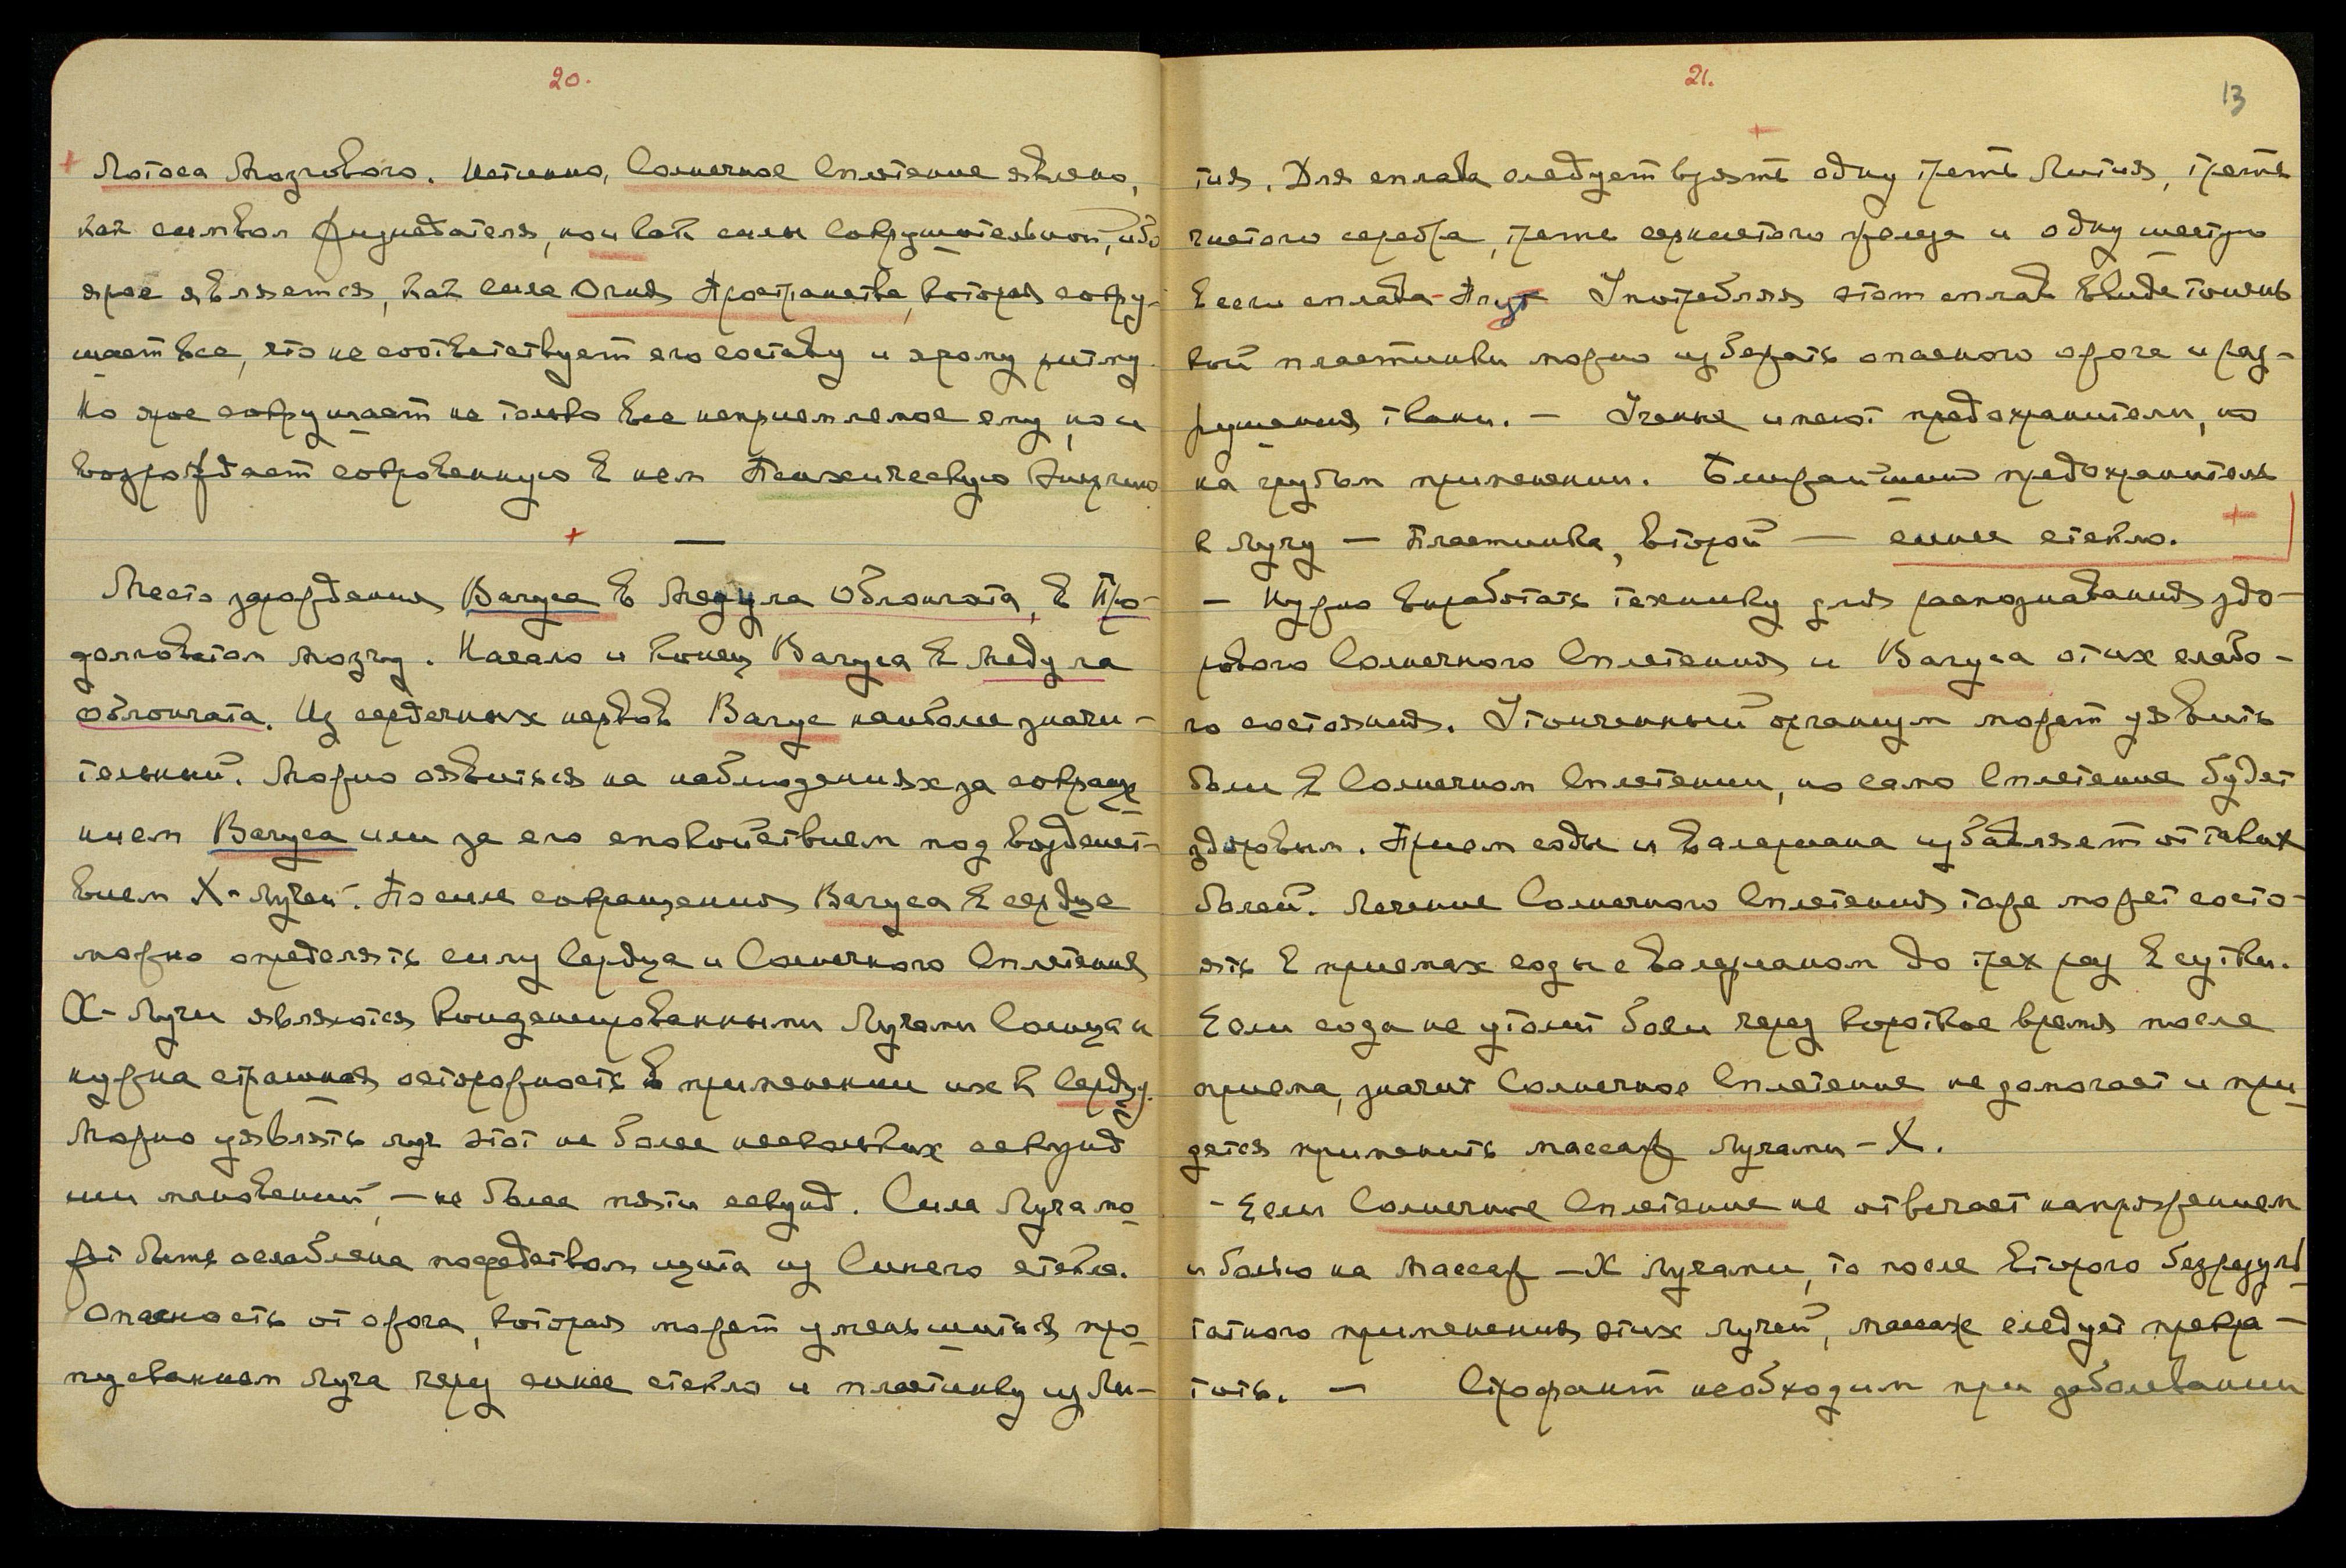 20.
Лотоса Мозгового. Истинно, Солнечное Сплетение явлено,
как символ Физиодателя, но и как силы сокрушительной, ибо
ярое является, как сила Огня Пространства, которая сокру-
шает все, что не соответствует его составу и ярому ритму.
Но ярое сокрушает не только все неприемлемое ему, но и
возрождает сокровенную в нем Психическую Энергию
—
Место зарождения Вагуса в Медула Облонгата, в Про-
долговатом мозгу. Начало и конец Вагуса в Медула
облонгата. Из сердечных нервов Вагус наиболее значи-
тельный. Можно явиться на наблюдениях за сокраще-
нием Вагуса или за его спокойствием под воздейст-
вием Х-лучей. По силе сокращения Вагуса в сердце
можно определять силу Сердца и Солнечного Сплетения
Х-Лучи являются конденсированными Лучами Солнца и
нужна страшная осторожность в применении их к Сердцу.
Можно уявлять луч этот не более нескольких секунд
или мгновений, — не более пяти секунд. Сила Луча мо-
жет быть ослаблена посредством щита из Синего стекла.
Опасность от ожога, которая может уменьшиться про-
пусканием луча через синее стекло и пластинку из Ли-
21.
13
тия. Для сплава следует взять одну треть Лития, треть
чистого серебра, треть сернистого железа и одну шестую
всего сплава
Употребляя этот сплав в виде тонень-
кой пластинки можно избежать опасного ожога и раз-
рушения ткани. — Ученые имеют предохранители, но
на грубом применении. Ближайший предохранитель
к лучу — пластинка, второй — синее стекло.
— Нужно выработать технику для распознавания здо-
рового Солнечного Сплетения и Вагуса от их слабо-
го состояния. Утонченный организм может уявить
боли в Солнечном Сплетении, но само Сплетение будет
здоровым. Прием соды и валериана избавляет от таких
болей. Лечение Солнечного Сплетения тоже может состо-
ять в приемах соды с валерианом до трех раз в сутки.
Если сода не утолит боли через короткое время после
приема, значит Солнечное Сплетение не домогает и при-
дется применить массаж Лучами-Х.
- Если Солнечное Сплетение не отвечает напряжением
и болью на массаж — Х лучами, то после второго безрезуль-
татного применения этих лучей, массаж следует прекра-
тить. — Строфант необходим при заболевании